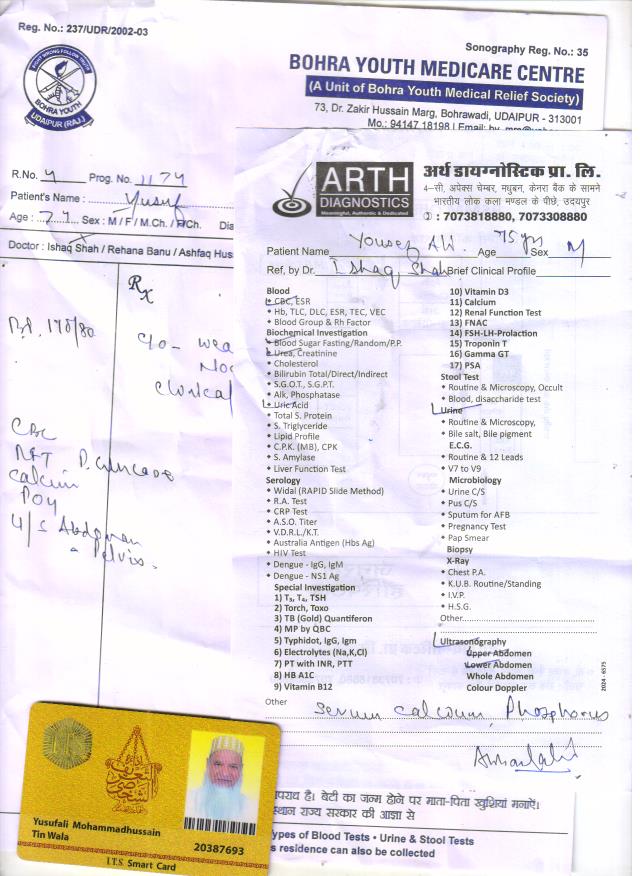 Reg. No.: 237/UDR/2002-03
Sonography Reg. No.: 35
BOHRA YOUTH
UDAIPUR (RAJ.)
BOHRA YOUTH MEDICARE CENTRE
(A Unit of Bohra Youth Medical Relief Society)
73, Dr. Zakir Hussain Marg, Bohrawadi, UDAIPUR - 313001
Mo.: 94147 18198 | Email:
R.No. 4 Prog. No. 1174
Patient's Name : Yusuf
Age : Sex : M / F / M.Ch. / F.Ch. Dia
Doctor : Ishaq Shah / Rehana Banu / Ashfaq Hus
Rx
178/80
c/o - wea
clinical
CBC
RFT
calcium
U/S Abdomen
Pelvis.
ARTH
DIAGNOSTICS
Meaningful, Authentic & Dedicated
अर्थ डायग्नोस्टिक प्रा. लि.
4-सी, अपेक्स चेम्बर, मधुबन, केनरा बैंक के सामने
भारतीय लोक कला मण्डल के पीछे, उदयपुर
: 7073818880, 7073308880
Patient Name Yousef Ali Age 75 yrs Sex M
Ref, by Dr. Ishaq Shah Brief Clinical Profile
Blood
CBC, ESR
Hb, TLC, DLC, ESR, TEC, VEC
Blood Group & Rh Factor
Biochemical Investigation
Blood Sugar Fasting/Random/P.P.
Urea, Creatinine
Cholesterol
Bilirubin Total/Direct/Indirect
S.G.O.T., S.G.P.T.
Alk, Phosphatase
Uric Acid
Total S. Protein
S. Triglyceride
Lipid Profile
C.P.K. (MB), CPK
S. Amylase
Liver Function Test
Serology
Widal (RAPID Slide Method)
R.A. Test
CRP Test
A.S.O. Titer
V.D.R.L./K.T.
Australia Antigen (Hbs Ag)
HIV Test
Dengue - IgG, IgM
Dengue - NS1 Ag
Special Investigation
1) T₃, T₄, TSH
2) Torch, Toxo
3) TB (Gold) Quantiferon
4) MP by QBC
5) Typhidot, IgG, Igm
6) Electrolytes (Na,K,Cl)
7) PT with INR, PTT
8) HB A1C
9) Vitamin B12
10) Vitamin D3
11) Calcium
12) Renal Function Test
13) FNAC
14) FSH-LH-Prolaction
15) Troponin T
16) Gamma GT
17) PSA
Stool Test
Routine & Microscopy, Occult
Blood, disaccharide test
Urine
Routine & Microscopy,
Bile salt, Bile pigment
E.C.G.
Routine & 12 Leads
V7 to V9
Microbiology
Urine C/S
Pus C/S
Sputum for AFB
Pregnancy Test
Pap Smear
Biopsy
X-Ray
Chest P.A.
K.U.B. Routine/Standing
I.V.P.
H.S.G.
Other
Ultrasonography
Upper Abdomen
Lower Abdomen
Whole Abdomen
Colour Doppler
2024 - 6575
Other Serum calcium, Phosphorus
पराध है। बेटी का जन्म होने पर माता-पिता खुशियां मनाऐं।
स्थान राज्य सरकार की आज्ञा से
ypes of Blood Tests • Urine & Stool Tests
s residence can also be collected
Yusufali Mohammadhussain
Tin Wala
20387693
I.T.S. Smart Card